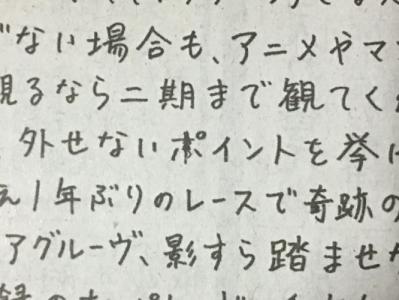 ない場合も、アニメやマ
観るなら二期まで観てく
外せないポイントを挙げ
1年ぶりのレースで奇跡の
アグルーヴ、影すら踏ませ